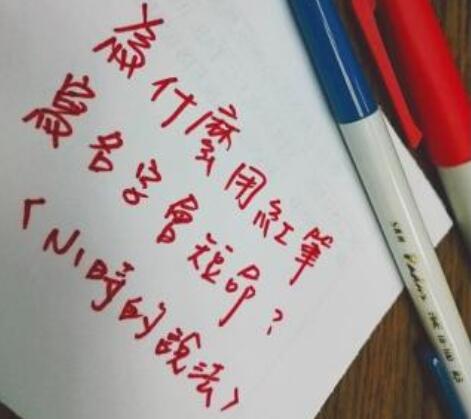 為什麼用紅筆
寫名字會短命？
（小時的說法）